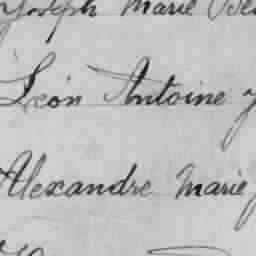 Joseph Marie
Léon Antoine
Alexandre Marie